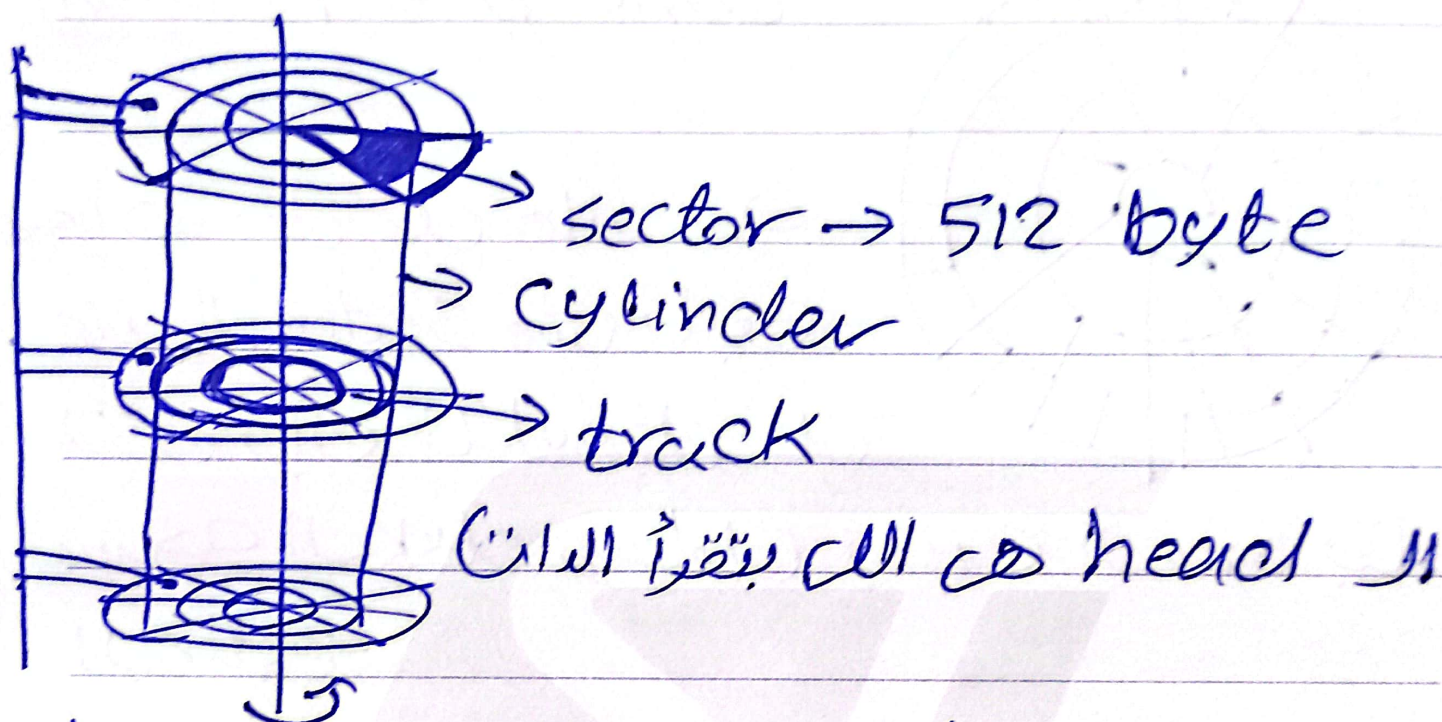 sector → 512 byte
cylinder
track
ال head هى اللى بتقرأ الداتا